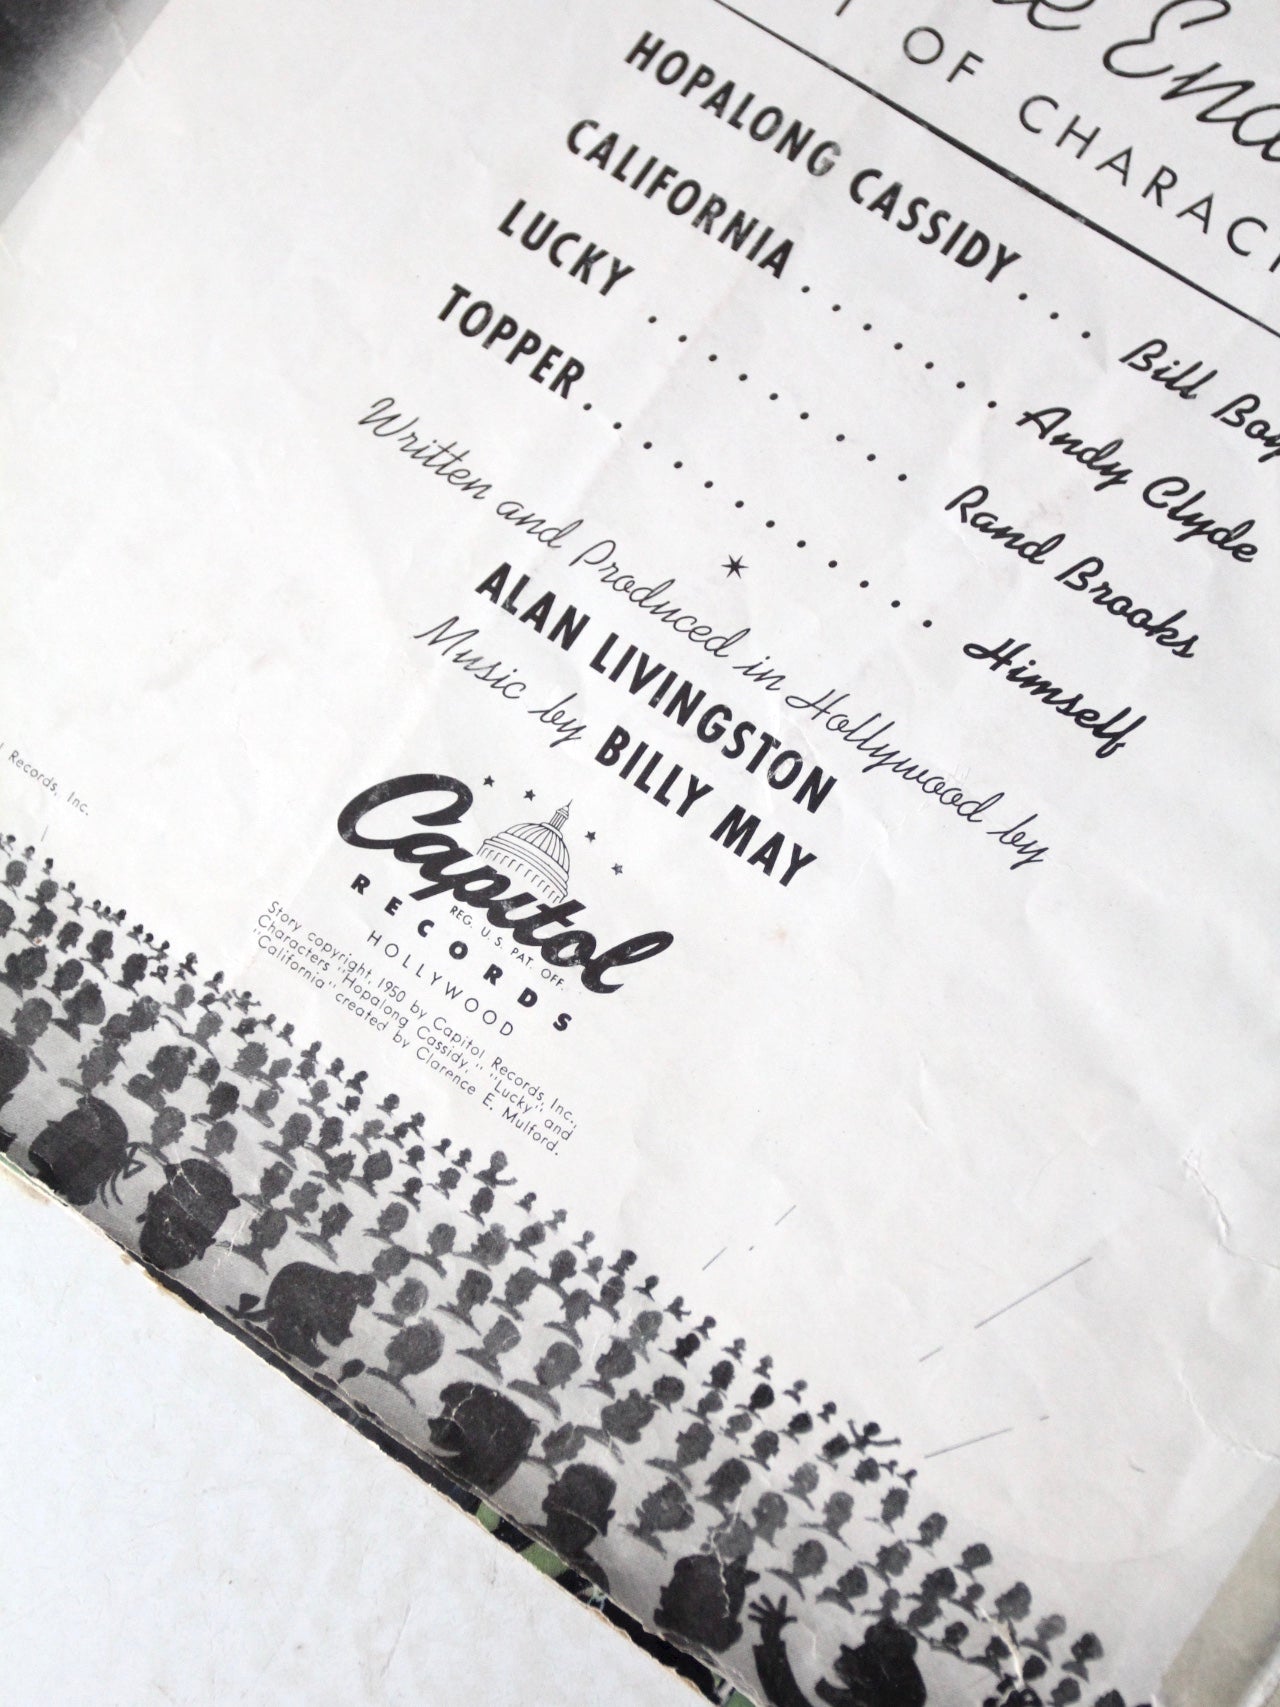 OF
HOPALONG CASSIDY . . . . Bill
CALIFORNIA . . . . . . . Andy Clyde
LUCKY . . . . . . . . . Rand Brooks
TOPPER . . . . . . . . . . . . Himself
Written and Produced in Hollywood by
ALAN LIVINGSTON
Music by BILLY MAY
Records, Inc.
Capitol
REG. U.S. PAT. OFF.
RECORDS
HOLLYWOOD
Story copyright, 1950 by Capitol Records, Inc.,
Characters "Hopalong Cassidy," "Lucky" and
"California" created by Clarence E. Mulford.